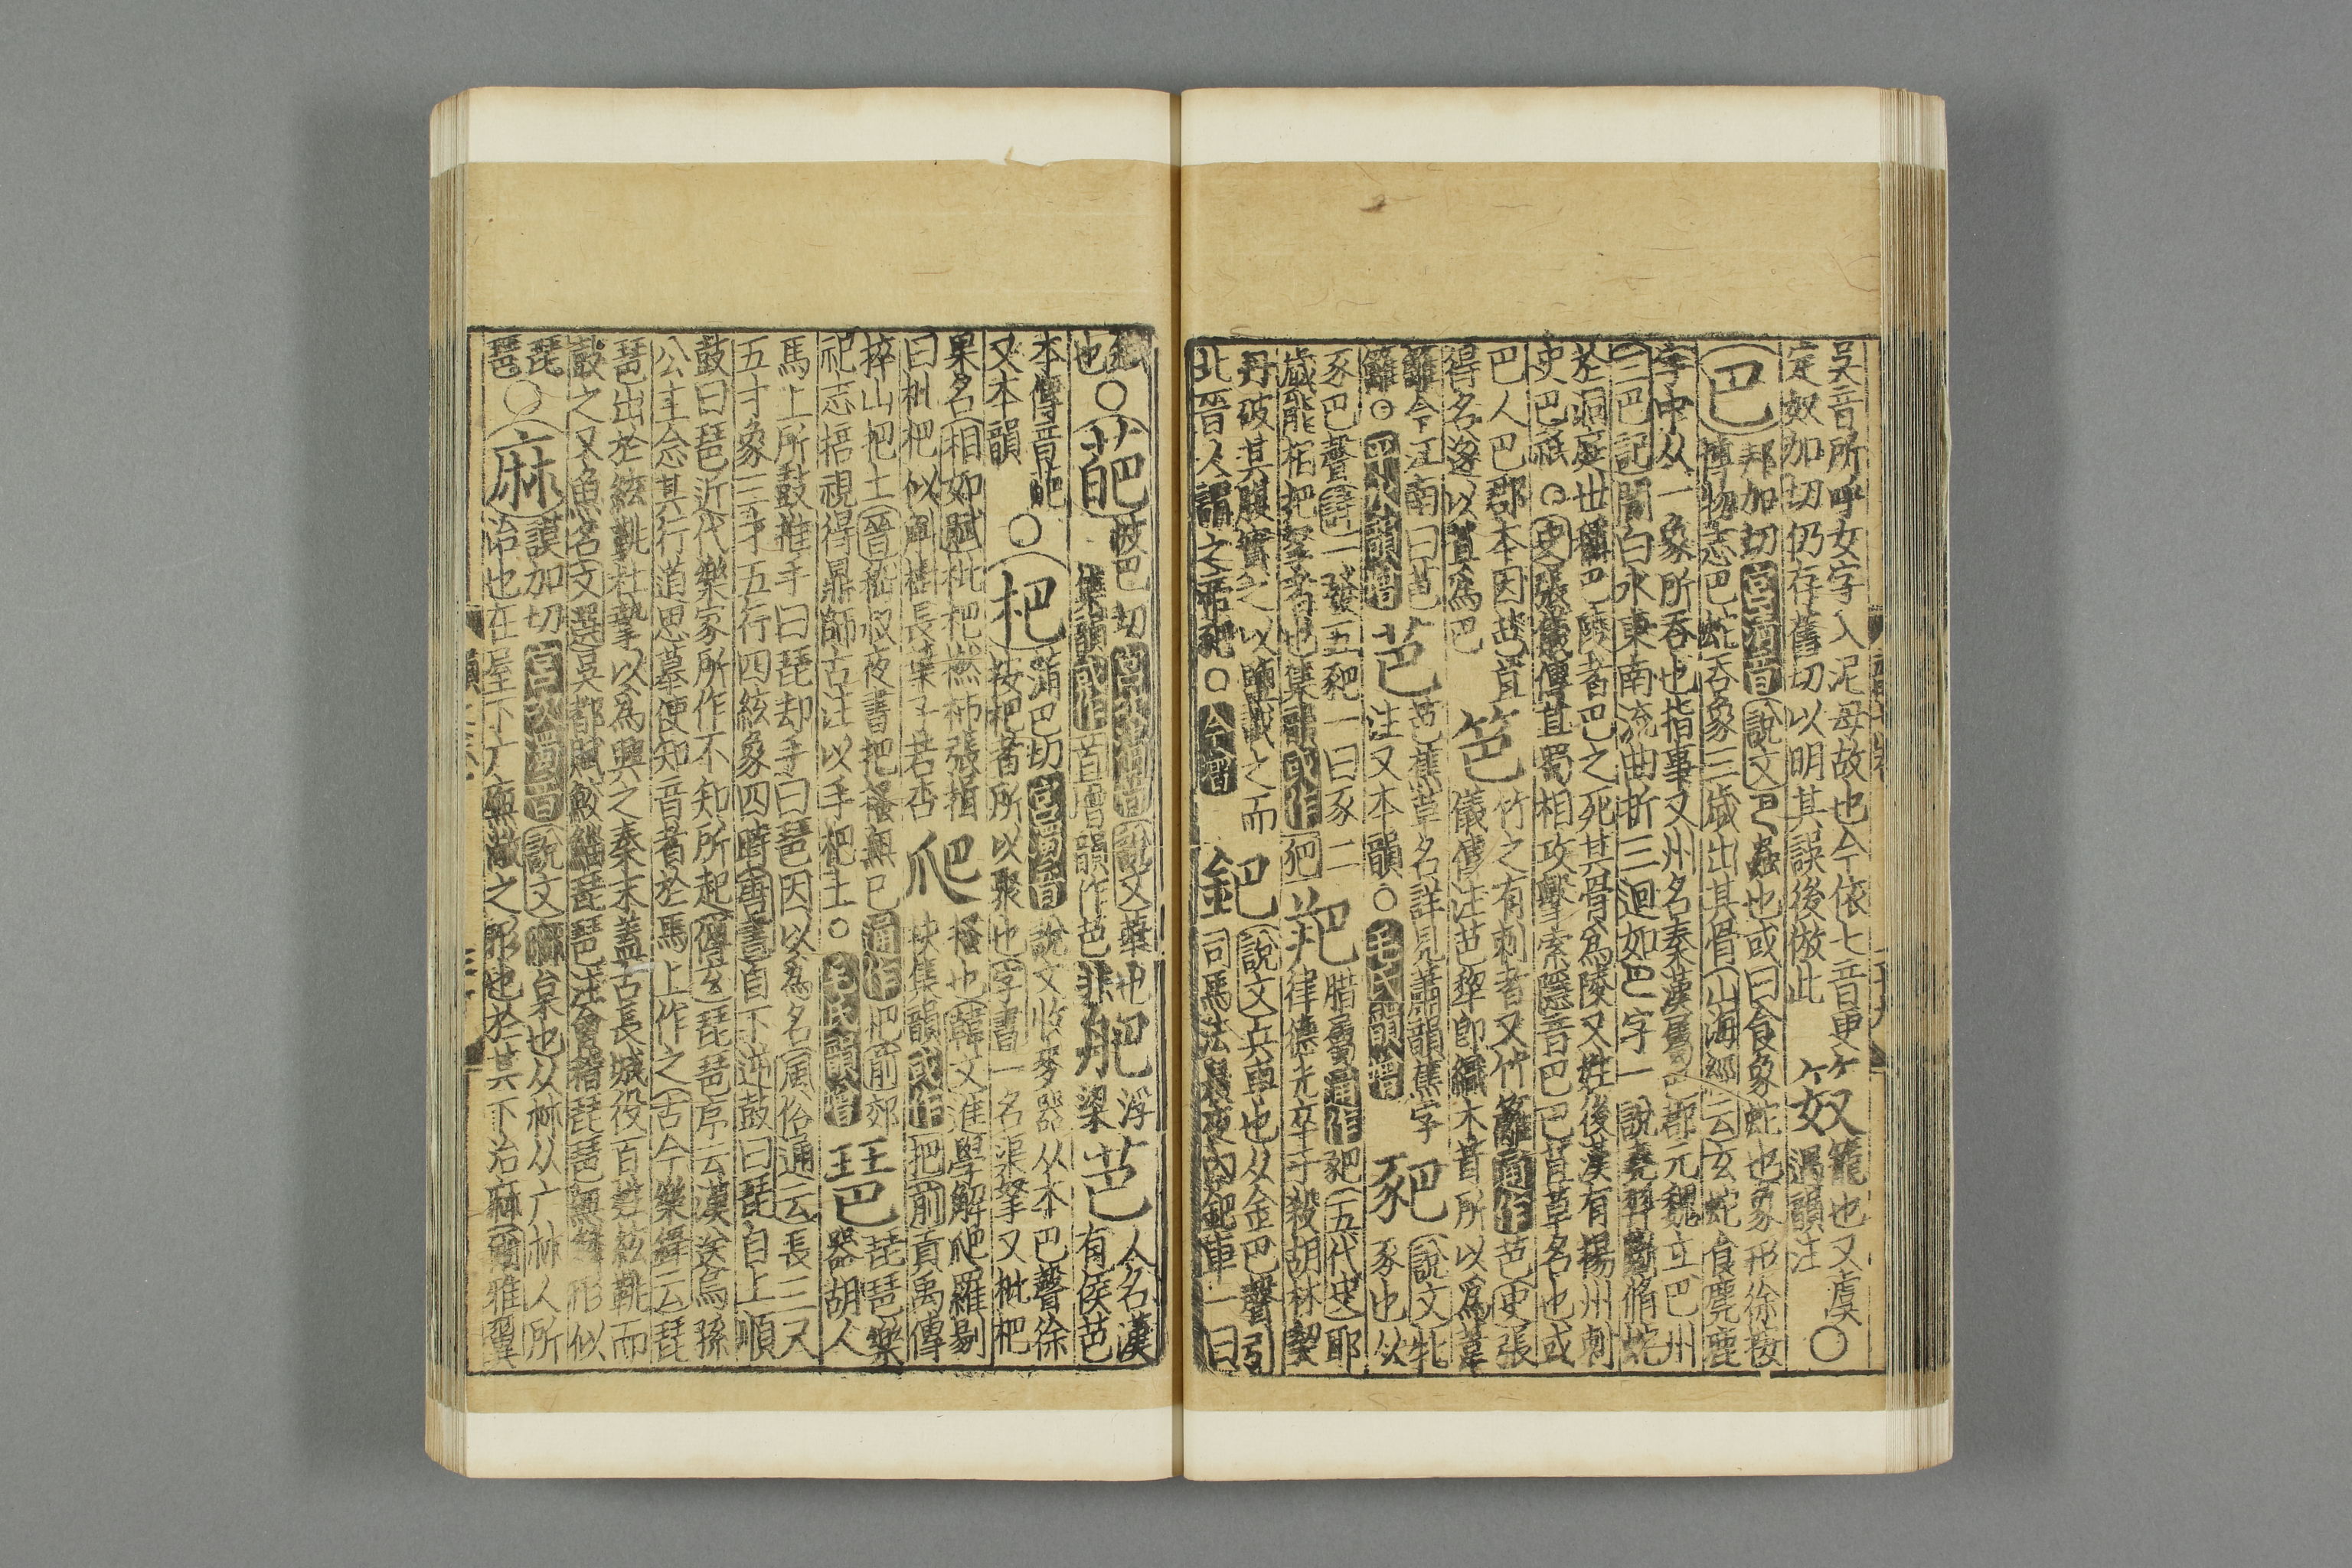 吳音所呼女字入泥母故也今依七音更
定奴加切仍存舊切以明其誤後倣此
笯
籠也又虞
遇韻注
○
巴
邦加切宮清音說文巴蟲也或曰食象蛇也象形徐按
博物志巴蛇吞象三歲出其骨山海經云玄蛇食麈鹿
字中从一象所吞也指事又州名秦漢屬巴郡元魏立巴州
三巴記閬白水東南流曲折三迴如巴字一說堯羿斷脩蛇
於洞庭世稱巴陵者巴之死其骨爲陵又姓後漢有揚州刺
史巴祗○史張儀傳苴蜀相攻擊索隱音巴巴苴草名也或
巴人巴郡本因芭苴
得名遂以苴爲巴
笆
竹之有刺者又竹籬通作芭史張
儀傳注芭犂卽織木葺所以爲葦
籬今江南曰芭
籬○四聲韻增
芭
芭蕉草名詳見蕭韻蕉字
注又本韻○毛氏韻增
豝
說文牝
豕也从
豕巴聲詩一發五豝一曰豕二
歲能相把拏者也集韻或作犯
羓
腊屬通作豝五代史耶
律德光卒于殺胡林契
丹破其腹實之以鹽載之而
北晉人謂之帝羓○今增
鈀
說文兵車也从金巴聲引
司馬法晨夜內鈀車一曰
也○
葩
披巴切宮次清音說文華也
集韻或作苩增韻作芭非
舥
浮
梁
芭
人名漢
有侯芭
本傳音葩
又本韻
○
杷
蒲巴切宮濁音說文收麥器从木巴聲徐
按杷者所以聚也字書一名渠拏又枇杷
果名相如賦枇杷橪柿張揖
曰枇杷似斛樹長葉子若杏
爬
搔也韓文進學解爬羅剔
抉集韻或作把前貢禹傳
捽山杷土晉嵇叔夜書把搔無已通作杷前郊
祀志掊視得鼎師古注以手杷土○毛氏韻增
琶
琵琶樂
器胡人
馬上所鼓推手曰琵却手曰琶因以爲名風俗通云長三又
五寸象三才五行四絃象四時唐書自下逆鼓曰琵自上順
鼓曰琶近代樂家所作不知所起傅玄琵琶序云漢送烏孫
公主念其行道思慕使知音者於馬上作之古今樂錄云琵
琶出於絃鼗杜摯以爲興之秦末蓋古長城役百姓絃鼗而
鼓之又魚名文選吳都賦鮫鯔琵琶注會稽琵琶無鱗形似
琵
琶
○
麻
謨加切宮次濁音說文枲也从𣏟从广𣏟人所
治也在屋下广廡敞之形也於其下治麻爾雅翼